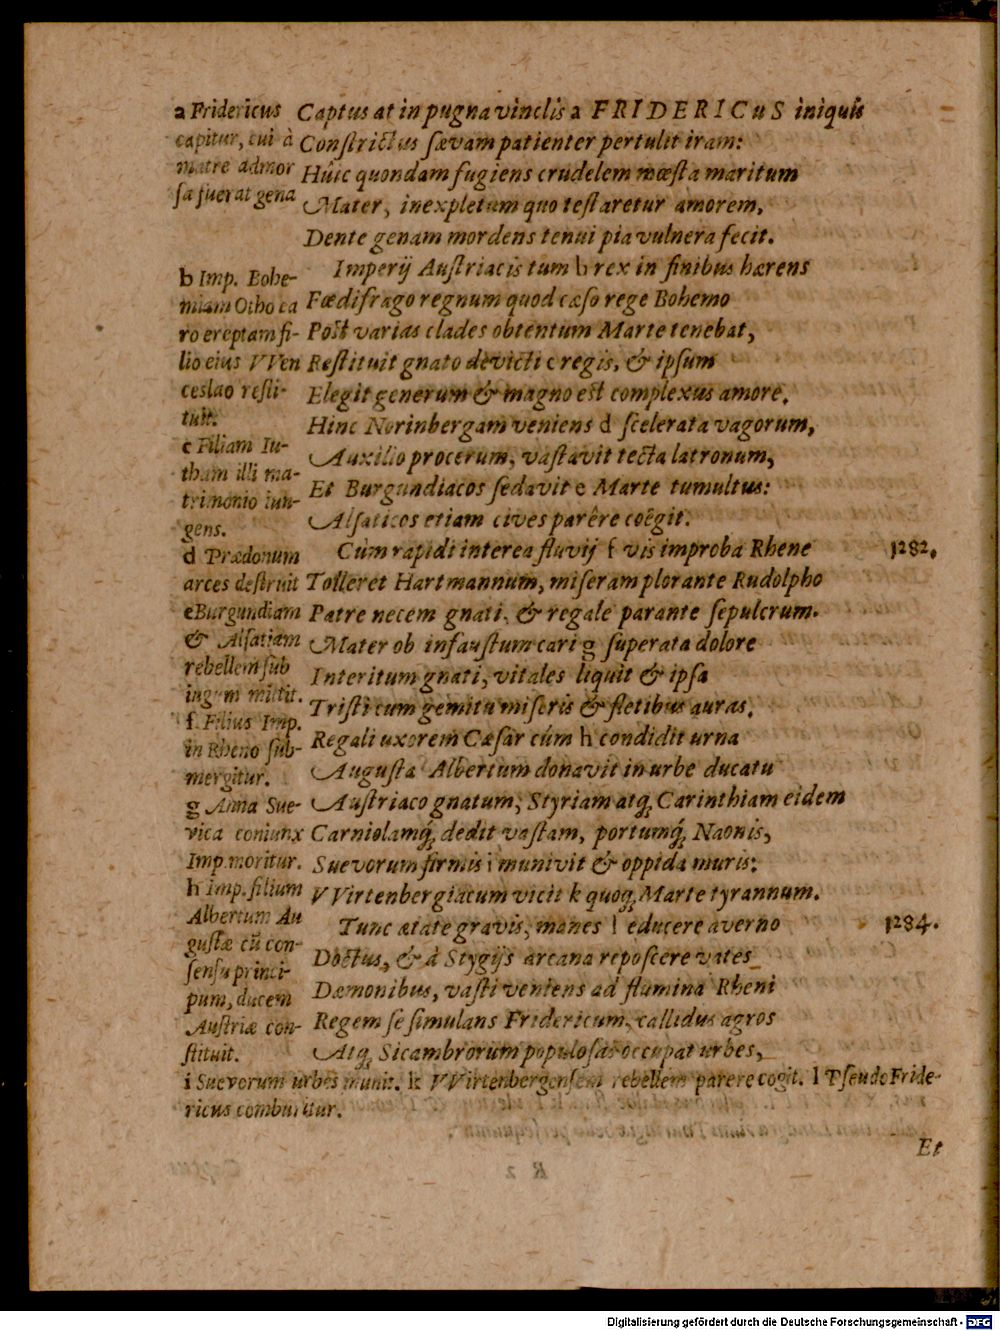 Captus at in pugna vinclis a FRIDERICuS iniquis
Constrictus sævam patienter pertulit iram:
Húic quondam fugiens crudelem mœsta maritum
Mater, inexpletum quo testaretur amorem,
Dente genam mordens tenui pia vulnera fecit.
Imperij Austriacis tum b rex in finibus hærens
Fœdifrago regnum quod cæso rege Bohemo
Post varias clades obtentum Marte tenebat,
Restituit gnato devicti c regis, & ipsum
Elegit generum & magno est complexus amore.
Hinc Norinbergam veniens d scelerata vagorum,
Auxilio procerum, vastavit tecta latronum,
Et Burgundiacos sedavit e Marte tumultus:
Alsaticos etiam cives parêre coêgit.
Cùm rapidi interea fluvij f vis improba Rhene
Tolleret Hartmannum, miseram plorante Rudolpho
Patre necem gnati, & regale parante sepulcrum.
Mater ob infaustum cari g superata dolore
Interitum gnati, vitales liquit & ipsa
Tristi cum gemitu miseris & fletibus auras.
Regali uxorem Cæsar cúm h condidit urna
Augusta Albertum donavit in urbe ducatu
Austriaco gnatum, Styriam atq, Carinthiam eidem
Carniolamq́, dedit vastam, portumq́, Naonis,
Suevorum firmis i munivit & oppida muris:
VVirtenbergiacum vicit k quoq, Marte tyrannum.
Tunc ætate gravis, manes l educere averno
Doctus, & à Stygijs arcana reposcere vates
Dæmonibus, vasti veniens ad flumina Rheni
Regem se simulans Fridericum, callidus agros
Atq, Sicambrorum populosas occupat urbes,
a Fridericus
capitur, cui à
matre admor
sa fuerat gena
b Imp. Bohe-
miam Otho ca
ro ereptam fi-
lio eius VVen
ceslao resti-
tuit.
c Filiam Iu-
tham illi ma-
trimonio iun-
gens.
d Prædonum
arces destruit
e Burgundiam
& Alsatiam
rebellem sub
iugum mittit.
f. Filius Imp.
in Rheno sub-
mergitur.
g Anna Sue-
vica coniunx
Imp. moritur.
h Imp. filium
Albertum Au
gustæ cū con-
sensu princi-
pum, ducem
Austriæ con-
stituit.
i Suevorum urbes munit. k VVirtenbergensem rebellem parere cogit. l Pseudo Fride-
ricus comburitur.
1282.
1284.
Et
Digitalisierung gefördert durch die Deutsche Forschungsgemeinschaft - DFG